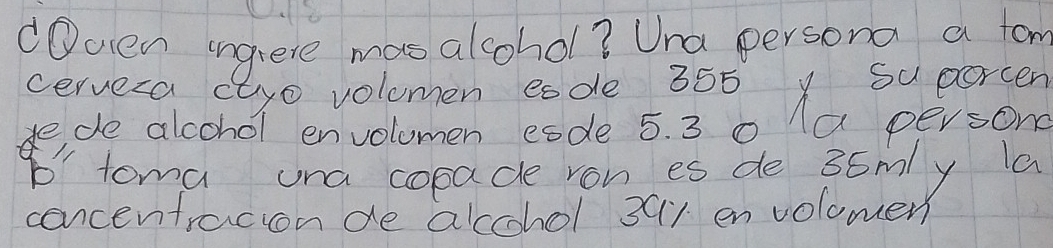 ¿Quien ingiere mas alcohol? Una persona a tom
cerveza cuyo volumen es de 355 y su porcen
je de alcohol en volumen es de 5.3 o la persona
b" toma una copa de ron es de 35ml y la
concentracion de alcohol 39% en volumen